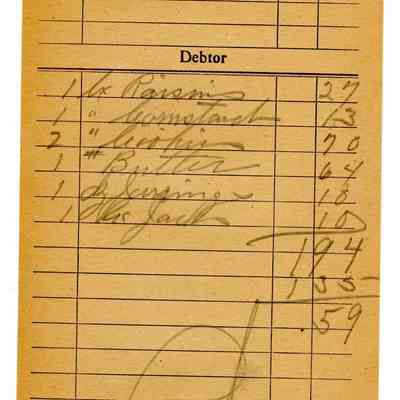 Debtor
1 bx Raisins 27
1 " Cornstarch 13
2 " Cookies 70
1 # Butter 64
1 10
1 10
194
135
.59